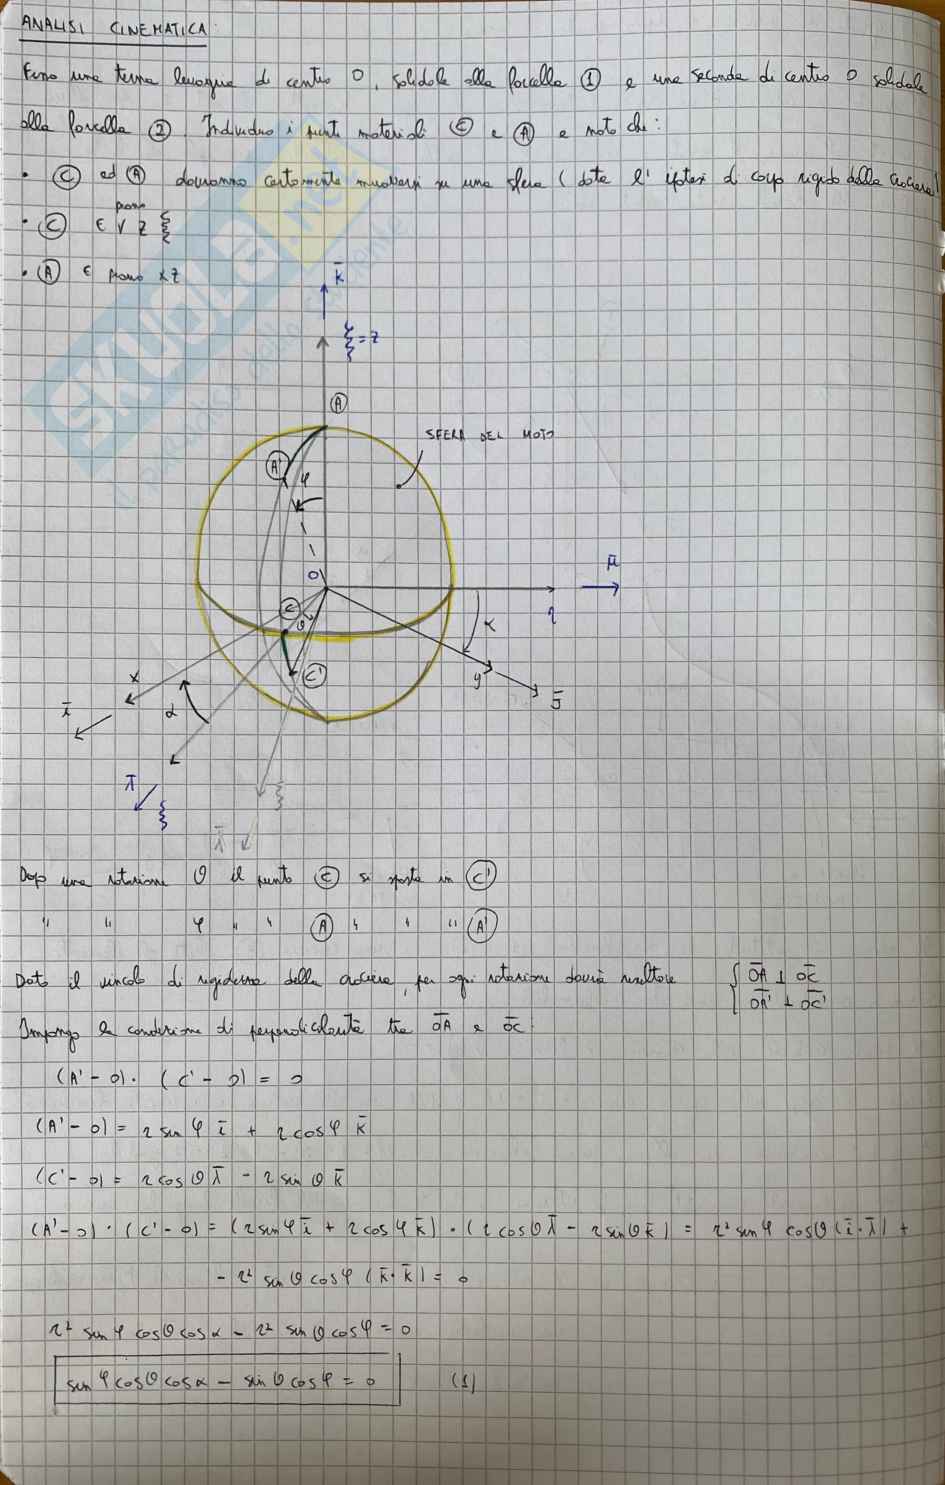 ANALISI CINEMATICA:
Fisso una terna levogira di centro O, solidale alla forcella ① e una seconda di centro O solidale
alla forcella ②. Individuo i punti materiali Ⓒ e Ⓐ e noto che:
• Ⓒ ed Ⓐ dovranno certamente muoversi su una sfera (data l'ipotesi di corpo rigido della crociera)
• Ⓒ ∈ piano z ξ
• Ⓐ ∈ piano xz
k̄
ξ = z
Ⓐ
SFERA DEL MOTO
A'
φ
O
μ̄
η
C
θ
α
C'
y
j̄
x
ī
α
λ̄
ξ
ξ
λ̄
Dopo una rotazione θ il punto Ⓒ si sposta in C'
" " φ " " Ⓐ " " " A'
Dato il vincolo di rigidezza della crociera, per ogni rotazione dovrà risultare { OA ⊥ OC
OA' ⊥ OC'
Impongo la condizione di perpendicolarità tra OA e OC:
(A' - O) · (C' - O) = 0
(A' - O) = r sin φ ī + r cos φ k̄
(C' - O) = r cos θ λ̄ - r sin θ k̄
(A' - O) · (C' - O) = (r sin φ ī + r cos φ k̄) · (r cos θ λ̄ - r sin θ k̄) = r² sin φ cos θ (ī · λ̄) +
- r² sin θ cos φ (k̄ · k̄) = 0
r² sin φ cos θ cos α - r² sin θ cos φ = 0
sin φ cos θ cos α - sin θ cos φ = 0 (1)
SKUOLA.net
il paradiso dello studente